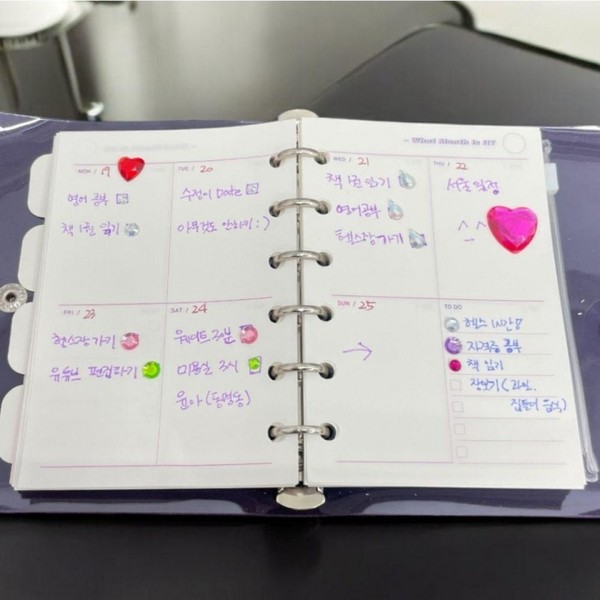 ~ What Month is it?
MON / 19
영어 공부
책 1권 읽기
TUE / 20
수정이 Date
아무것도 안하기 : )
WED / 21
책 1권 읽기
영어공부
헬스장 가기
THU / 22
서울 일정
^ ^
FRI / 23
헬스장 가기
유튜브 편집하기
SAT / 24
미용실 3시
윤아 (
SUN / 25
→
TO DO
헬스
자격증 공부
책 읽기
장보기 (과일,
음식)